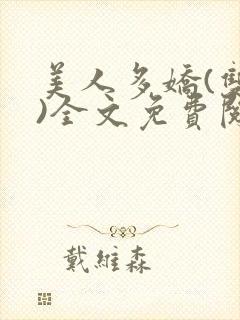 美人多嬌(雙
)全文免費閱
戴維森